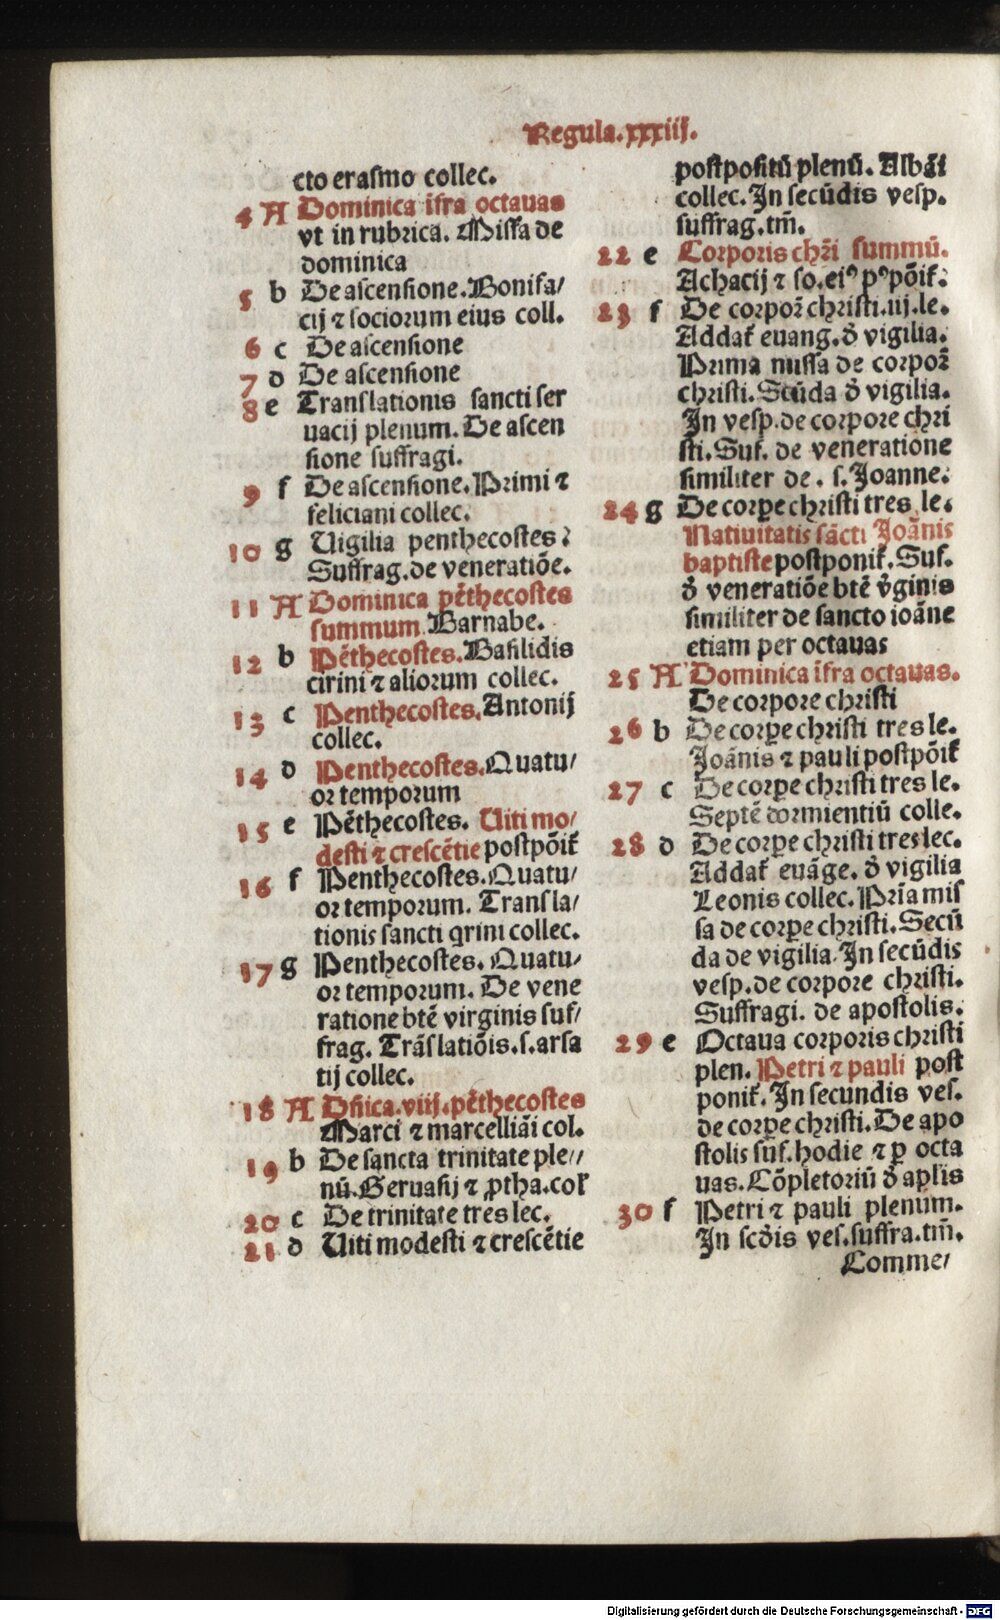 Regula.xxxiij.
cto erasmo collec.
4 A Dominica ĩfra octauas
vt in rubrica. Missa de
dominica
5 b De ascensione. Bonifa/
cij ⁊ sociorum eius coll.
6 c De ascensione
7 d De ascensione
8 e Translationis sancti ser
uacij plenum. De ascen
sione suffragi.
9 f De ascensione. Primi ⁊
feliciani collec.
10 g Uigilia penthecostes:
Suffrag. de veneratiõe.
11 A Dominica pẽthecostes
summum. Barnabe.
12 b Pẽthecostes. Basilidis
cirini ⁊ aliorum collec.
13 c Penthecostes. Antonij
collec.
14 d Penthecostes. Quatu/
or temporum
15 e Pẽthecostes. Uiti mo/
desti ⁊ crescẽtie postpõit᷑
16 f Penthecostes. Quatu/
or temporum. Transla/
tionis sancti qrini collec.
17 g Penthecostes. Quatu/
or temporum. De vene
ratione btẽ virginis suf/
frag. Trãslatiõis. s. arsa
tij collec.
18 A Dñica. viij. pẽthecostes
Marci ⁊ marcelliãi col.
19 b De sancta trinitate ple//
nũ. Geruasij ⁊ ꝓtha. col᷑
20 c De trinitate tres lec.
21 d Uiti modesti ⁊ crescẽtie
postpositũ plenũ. Albãi
collec. In secũdis vesp.
suffrag. tm̃.
22 e Corporis chr̃i summũ.
Achacij ⁊ so. eiꝰ pꝰpõit᷑:
23 f De corpor̃ christi. iij. le.
Addat᷑ euang. ð vigilia.
Prima missa de corpor̃
christi. Scũda ð vigilia.
In vesp. de corpore chri
sti. Suf. de veneratione
similiter de. s. Joanne.
24 g De corꝑe christi tres le.
Natiuitatis sãcti Joãnis
baptiste postponit᷑. Suf.
ð veneratiõe btẽ v̕ginis
similiter de sancto ioãne
etiam per octauas
25 A Dominica ĩfra octauas.
De corpore christi
26 b De corꝑe christi tres le.
Joãnis ⁊ pauli postpõit᷑
27 c De corꝑe christi tres le.
Septẽ dormientiũ colle.
28 d De corꝑe christi tres lec.
Addat᷑ euãge. ð vigilia
Leonis collec. Pri̅a mis
sa de corꝑe christi. Secũ
da de vigilia. In secũdis
vesp. de corpore christi.
Suffragi. de apostolis.
29 e Octaua corporis christi
plen. Petri ⁊ pauli post
ponit᷑. In secundis ves.
de corꝑe christi. De apo
stolis suf. hodie ⁊ ꝑ octa
uas. Cõpletoriũ ð aplis
30 f Petri ⁊ pauli plenum.
In scðis ves. suffra. tm̃.
Comme/
Digitalisierung gefördert durch die Deutsche Forschungsgemeinschaft - DFG